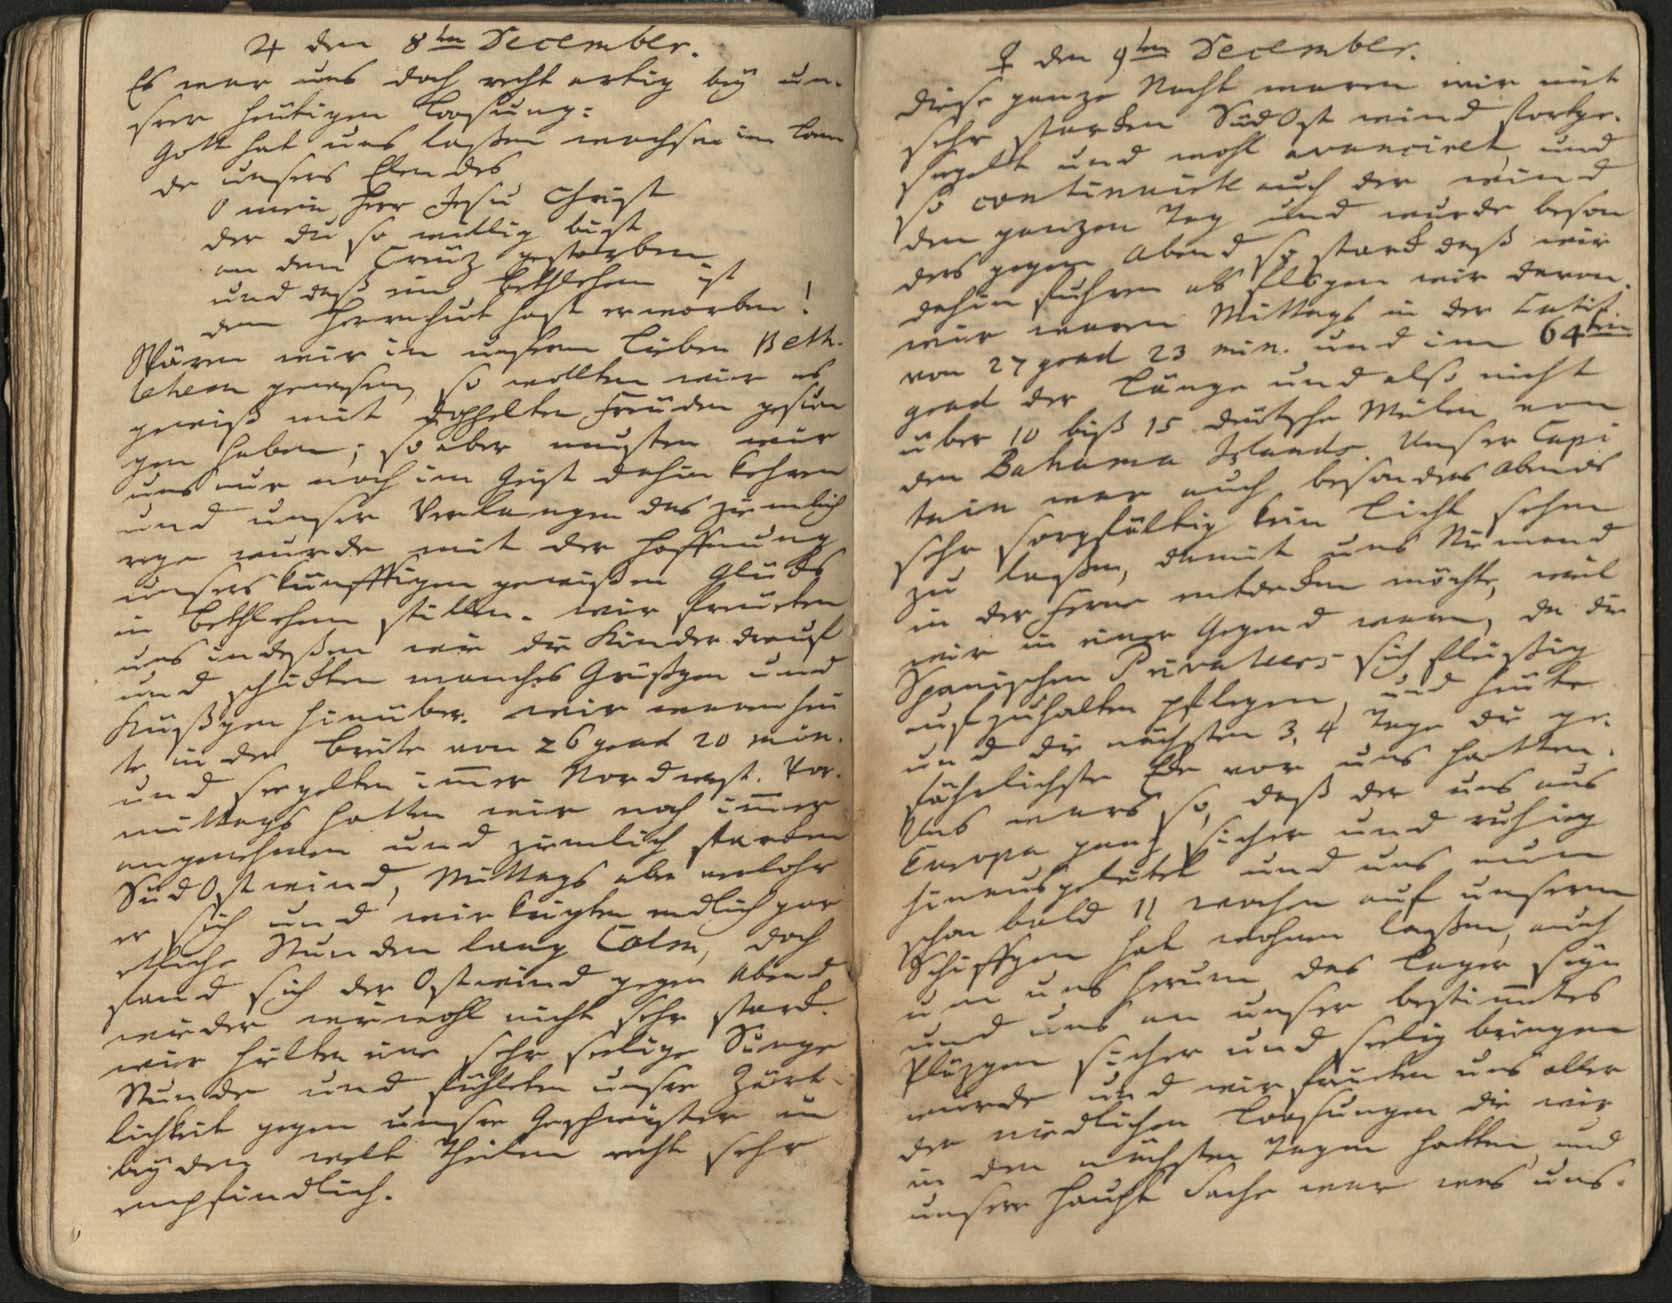 ♃ den 8ten December.
Es war uns doch recht artig bey un-
srer heutigen Loosung:
Gott hat uns laßen wachsen im Lan
de unsers Elendes
O mein Herr Jesu Christ
der du so willig bist
an dem Creuz gestorben
und daß ein Bethlehem ist
dem Herrnhut hast erworben!
Wären wir in unserm lieben Beth-
lehem gewesen, so wollten wir es
gewiß mit doppelten Freuden gesun
gen haben; so aber musten wir
uns nur noch im Geist dahin kehren
und unser Verlangen das ziemlich
rege wurde mit der Hoffnung
unsers künfftigen gewißen Glücks
in Bethlehem stillen. wir freueten
uns indeßen wie die Kinder drauf
und schickten manches Grüßgen und
Küßgen hinüber. wir waren heu
te in der Breite von 26 grad 20 min.
und seegelten im̅er Nordwest. Vor-
mittags hatten wir noch im̅er
angenehmen und ziemlich starken
SüdOstwind, Mittags aber verlohr
er sich und wir kriegten endlich gar
etliche Stunden lang Calm, doch
fand sich der Ostwind gegen Abend
wieder wiewohl nicht sehr stark.
wir hielten eine sehr seelige Singe
Stunde und fühleten unsre Zärt-
lichkeit gegen unsre Geschwister in
beyden welt Theilen recht sehr
empfindlich.
♀ den 9ten December.
diese ganze Nacht waren wir mit
sehr starken SüdOst wind fortge-
seegelt und wohl avanciret, und
so continuirte auch der wind
den ganzen Tag und wurde beson
ders gegen Abend so stark daß wir
dahin fuhren als flögen wir davon.
wir waren Mittags in der Latit.
von 27 grad 23 min. und im 64ten
grad der Länge und also nicht
über 10 biß 15 deutsche Meilen von
den Bahama Islands. Unser Capi
tain war auch besonders Abends
sehr sorgfältig kein Licht sehen
zu laßen, damit uns Niemand
in der Ferne entdecken möchte, weil
wir in einer Gegend waren, da die
Spanischen Privateers sich fleißig
aufzuhalten pflegen, und heute
und die nächsten 3, 4 Tage die ge-
fährlichste Ecke vor uns hatten.
Uns wars so, daß der uns aus
Europa ganz sicher und ruhig
hinausgeleitet und uns nun
schon bald 11 wochen auf unserm
Schiffgen hat wohnen laßen, auch
um uns herum das Lager seyn
und uns an unser bestim̅tes
Pläzgen sicher und seelig bringen
würde und wir freueten uns aller
der niedlichen Loosungen die wir
in den nächsten Tagen hatten, und
unsre Haupt Sache war was uns.